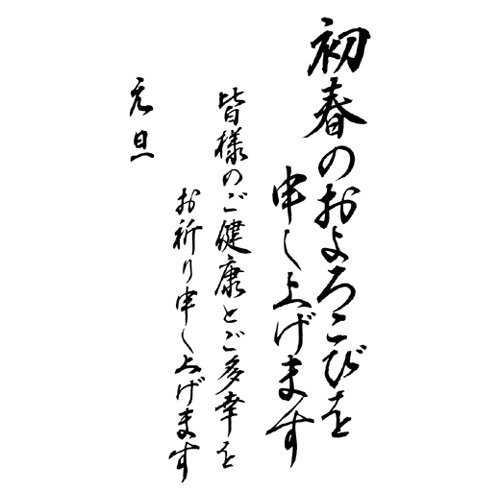 初春のおよろこびを
申し上げます
皆様のご健康とご多幸を
お祈り申し上げます
元旦